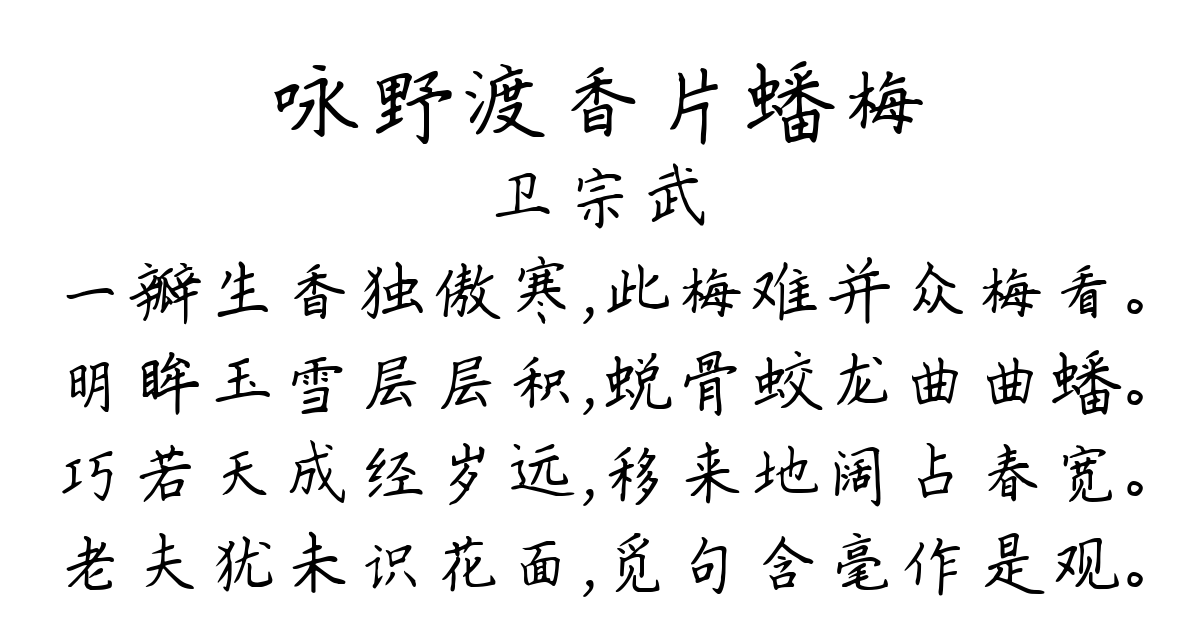 咏野渡香片蟠梅
卫宗武
一瓣生香独傲寒,此梅难并众梅看。
明眸玉雪层层积,蜕骨蛟龙曲曲蟠。
巧若天成经岁远,移来地阔占春宽。
老夫犹未识花面,觅句含毫作是观。